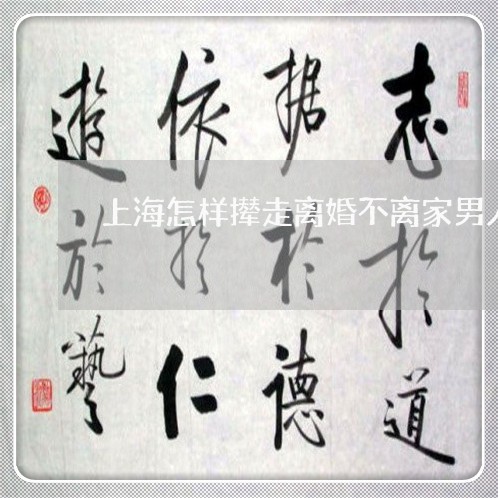 志於道
据於德
依於仁
遊於藝
上海怎样撵走离婚不离家男